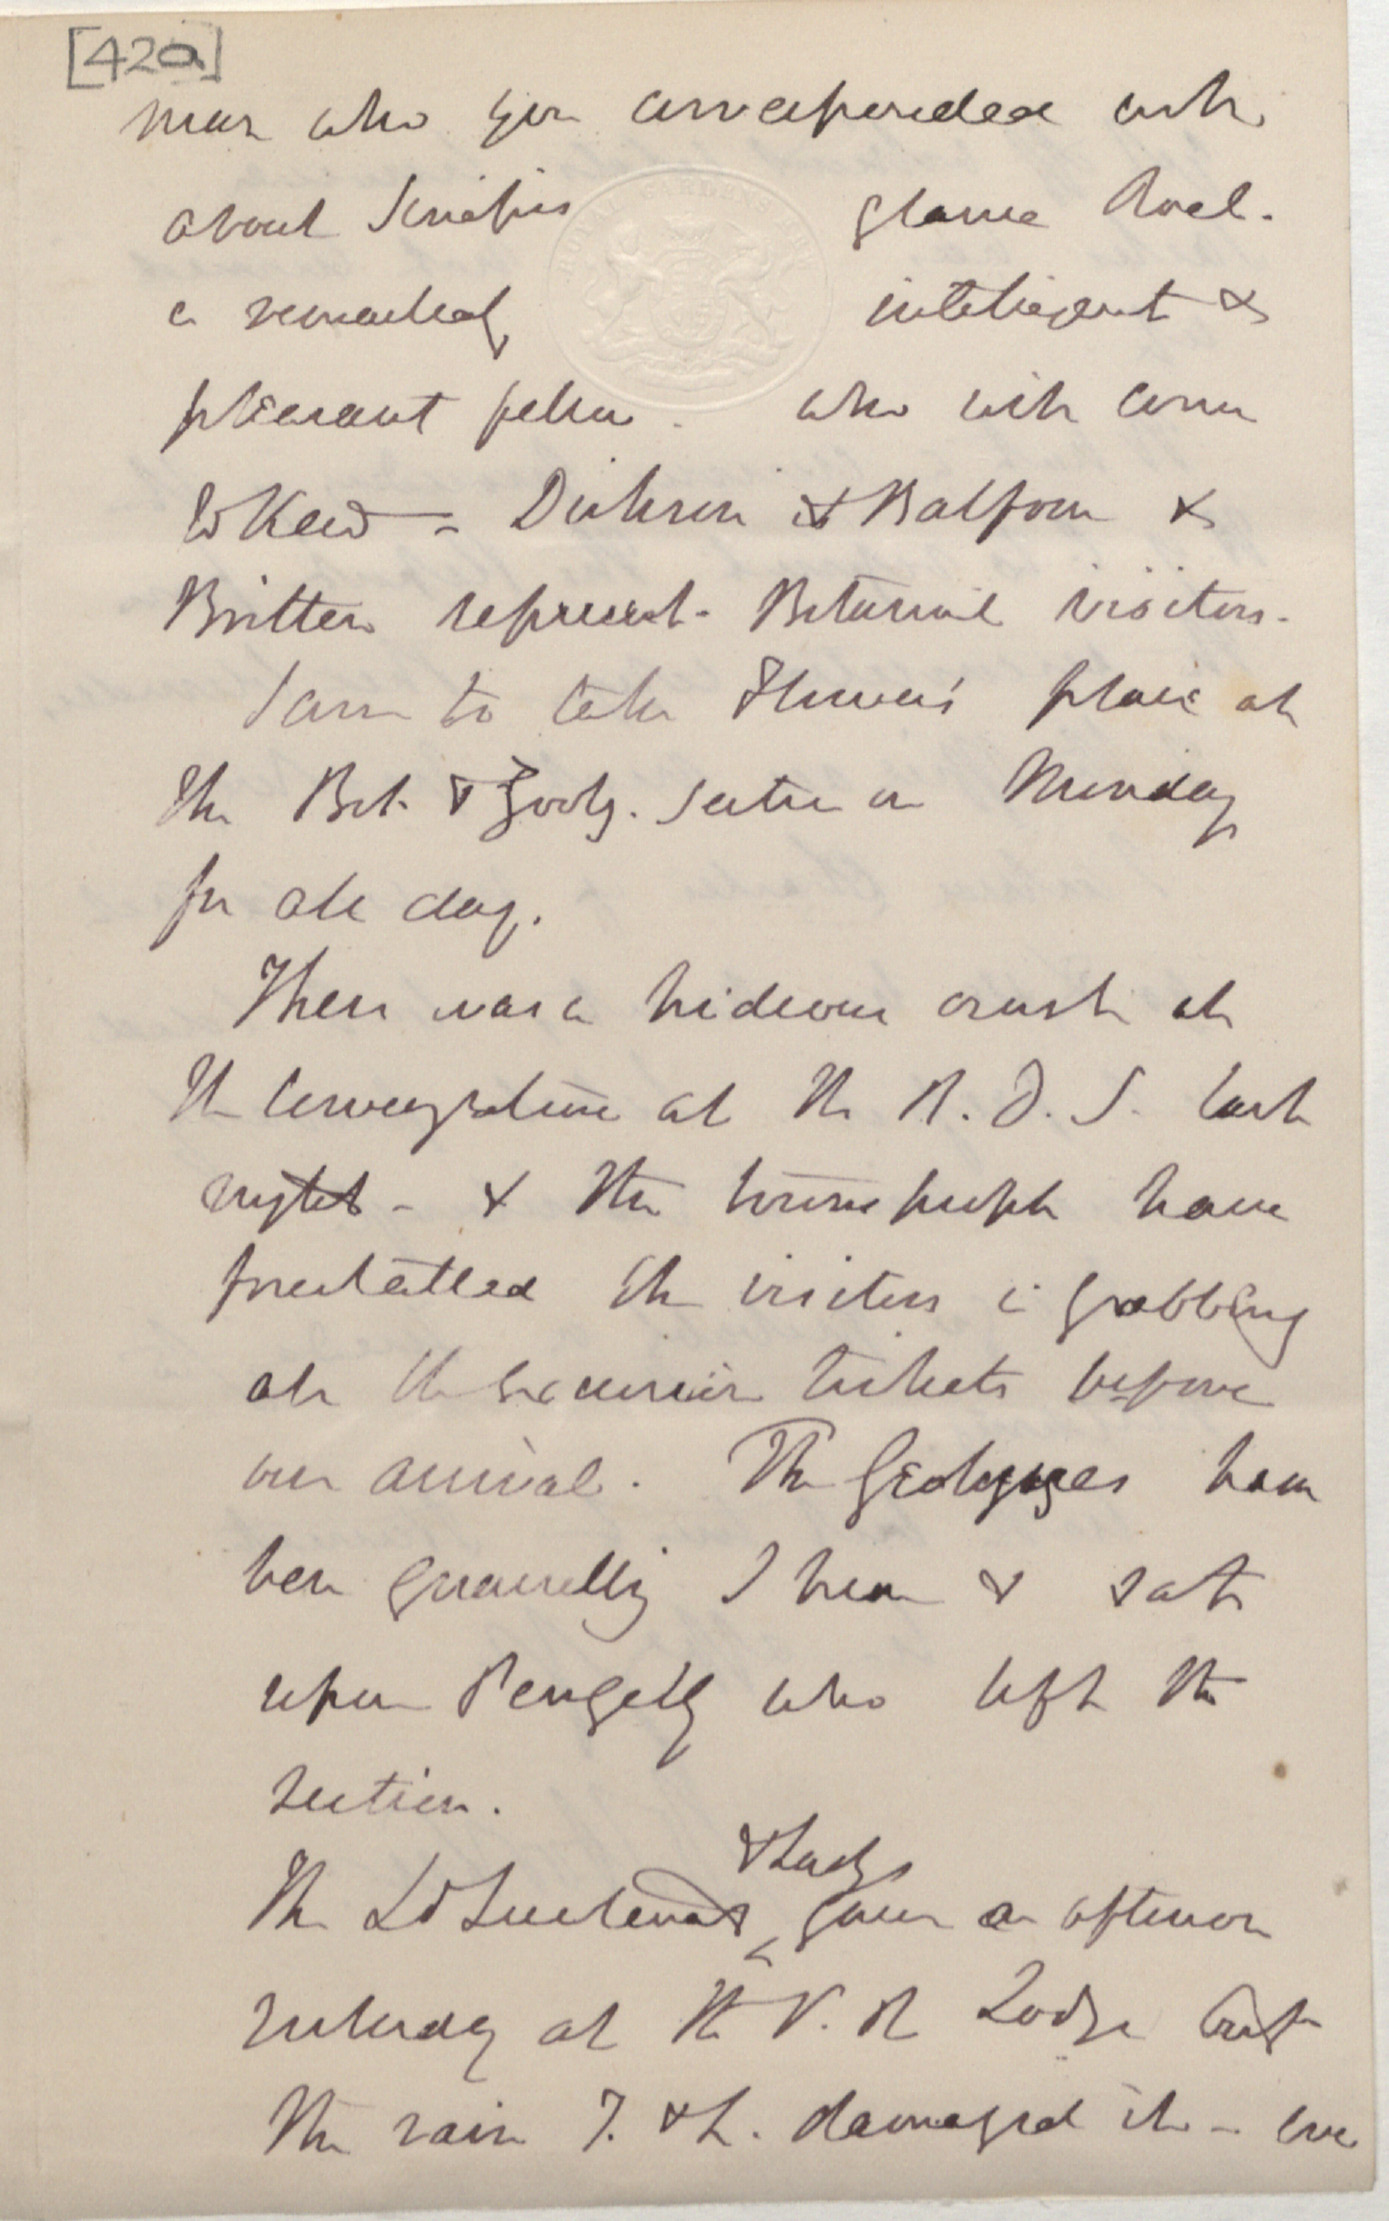 [42a]
man who you corresponded with
about Scirpus
a remarkably intelligent &
pleasant fellow. who will come
to Kew — Dickson & Balfour &
Britten represent Botanical visitors.
I am to take Flower's place at
the Bot. & Zoolg. Section on Monday
for all day.
There was a hideous crush at
the Conversazione at the R. D. S. last
night — & the townspeople have
forestalled the visitors in grabbing
all the Excursion tickets before
our arrival. The Geologues have
been quarrelling I hear & sat
upon Pengelly who left the
section.
The Ld Lieutenant & Lady gave an afternoon
yesterday at the V. R Lodge but
the rain T. & L. damaged it —